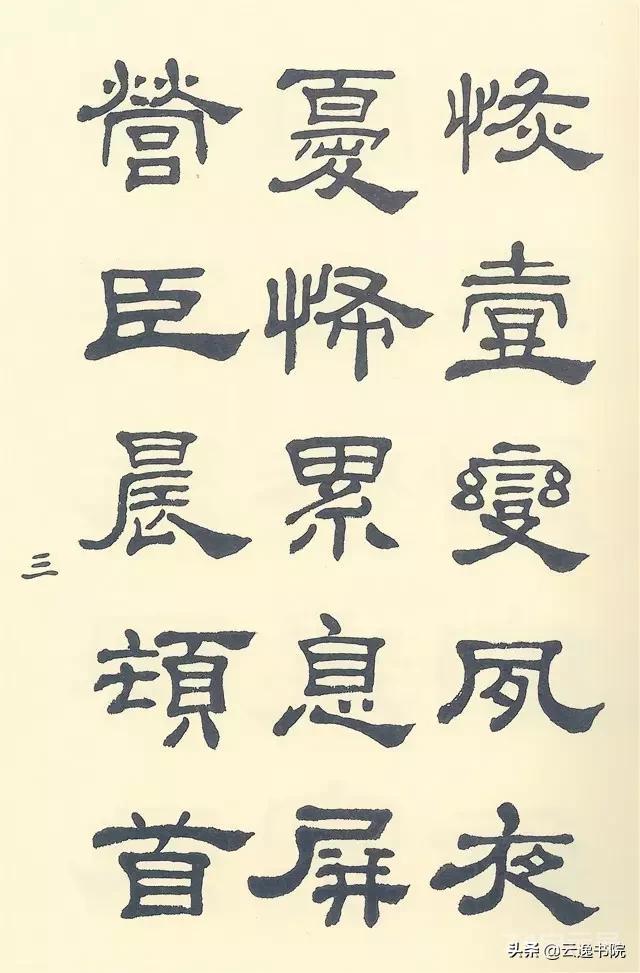 恢壹變夙夜
憂怖累息屏
營臣晨頓首
三
头条 @云逸书院